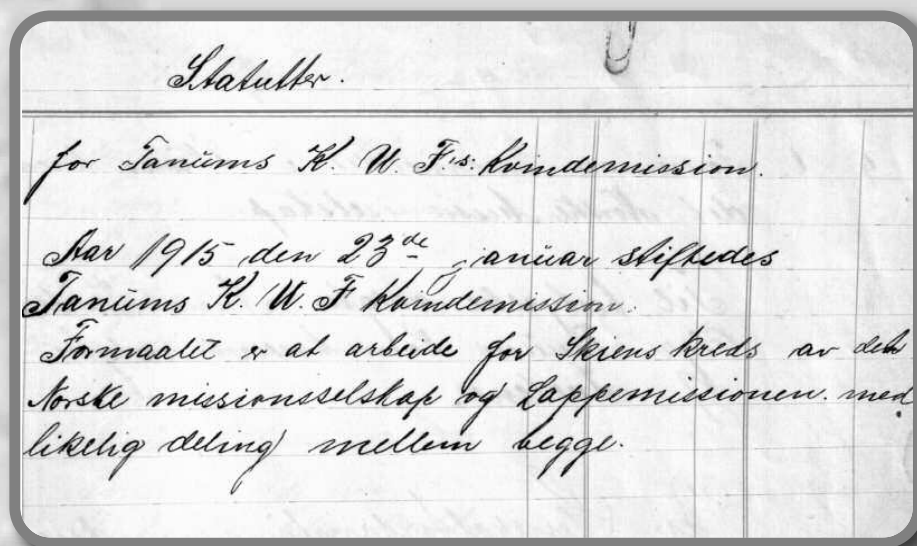 Statutter.
for Tanums K. U. F.'s. Kvindemission.
Aar 1915 den 23de januar stiftedes
Tanums K. U. F Kvindemission.
Formaalet er at arbeide for Skiens kreds av det
Norske missionsselskap og Lappemissionen. med
likelig deling mellem begge.